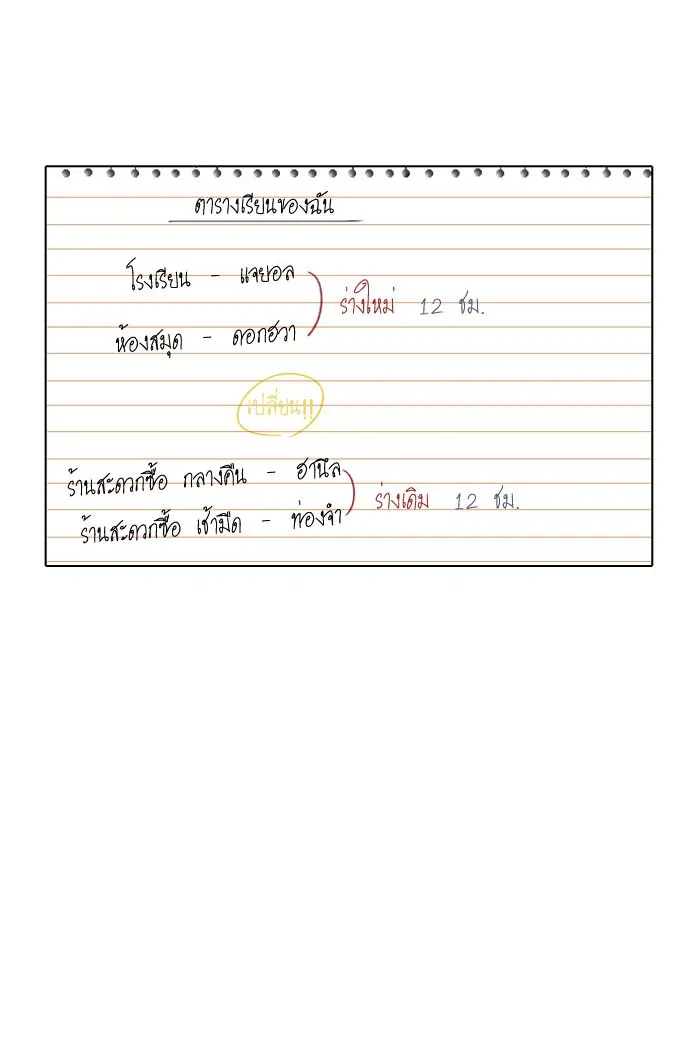 ตารางเรียนของฉัน
โรงเรียน - แจยอล
ห้องสมุด - ดอกฮวา
ร่างใหม่ 12 ชม.
เปลี่ยน!!
ร้านสะดวกซื้อ กลางคืน - ฮานึล
ร้านสะดวกซื้อ เช้ามืด - ท่องจำ
ร่างเดิม 12 ชม.